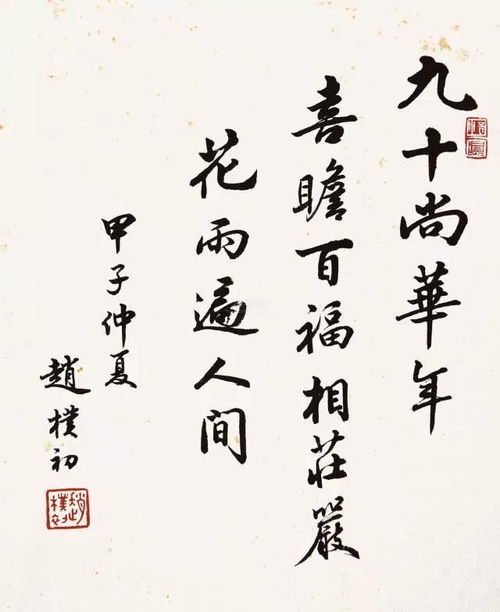 九十尚華年
喜瞻百福相莊嚴
花雨遍人间
甲子仲夏
趙樸初